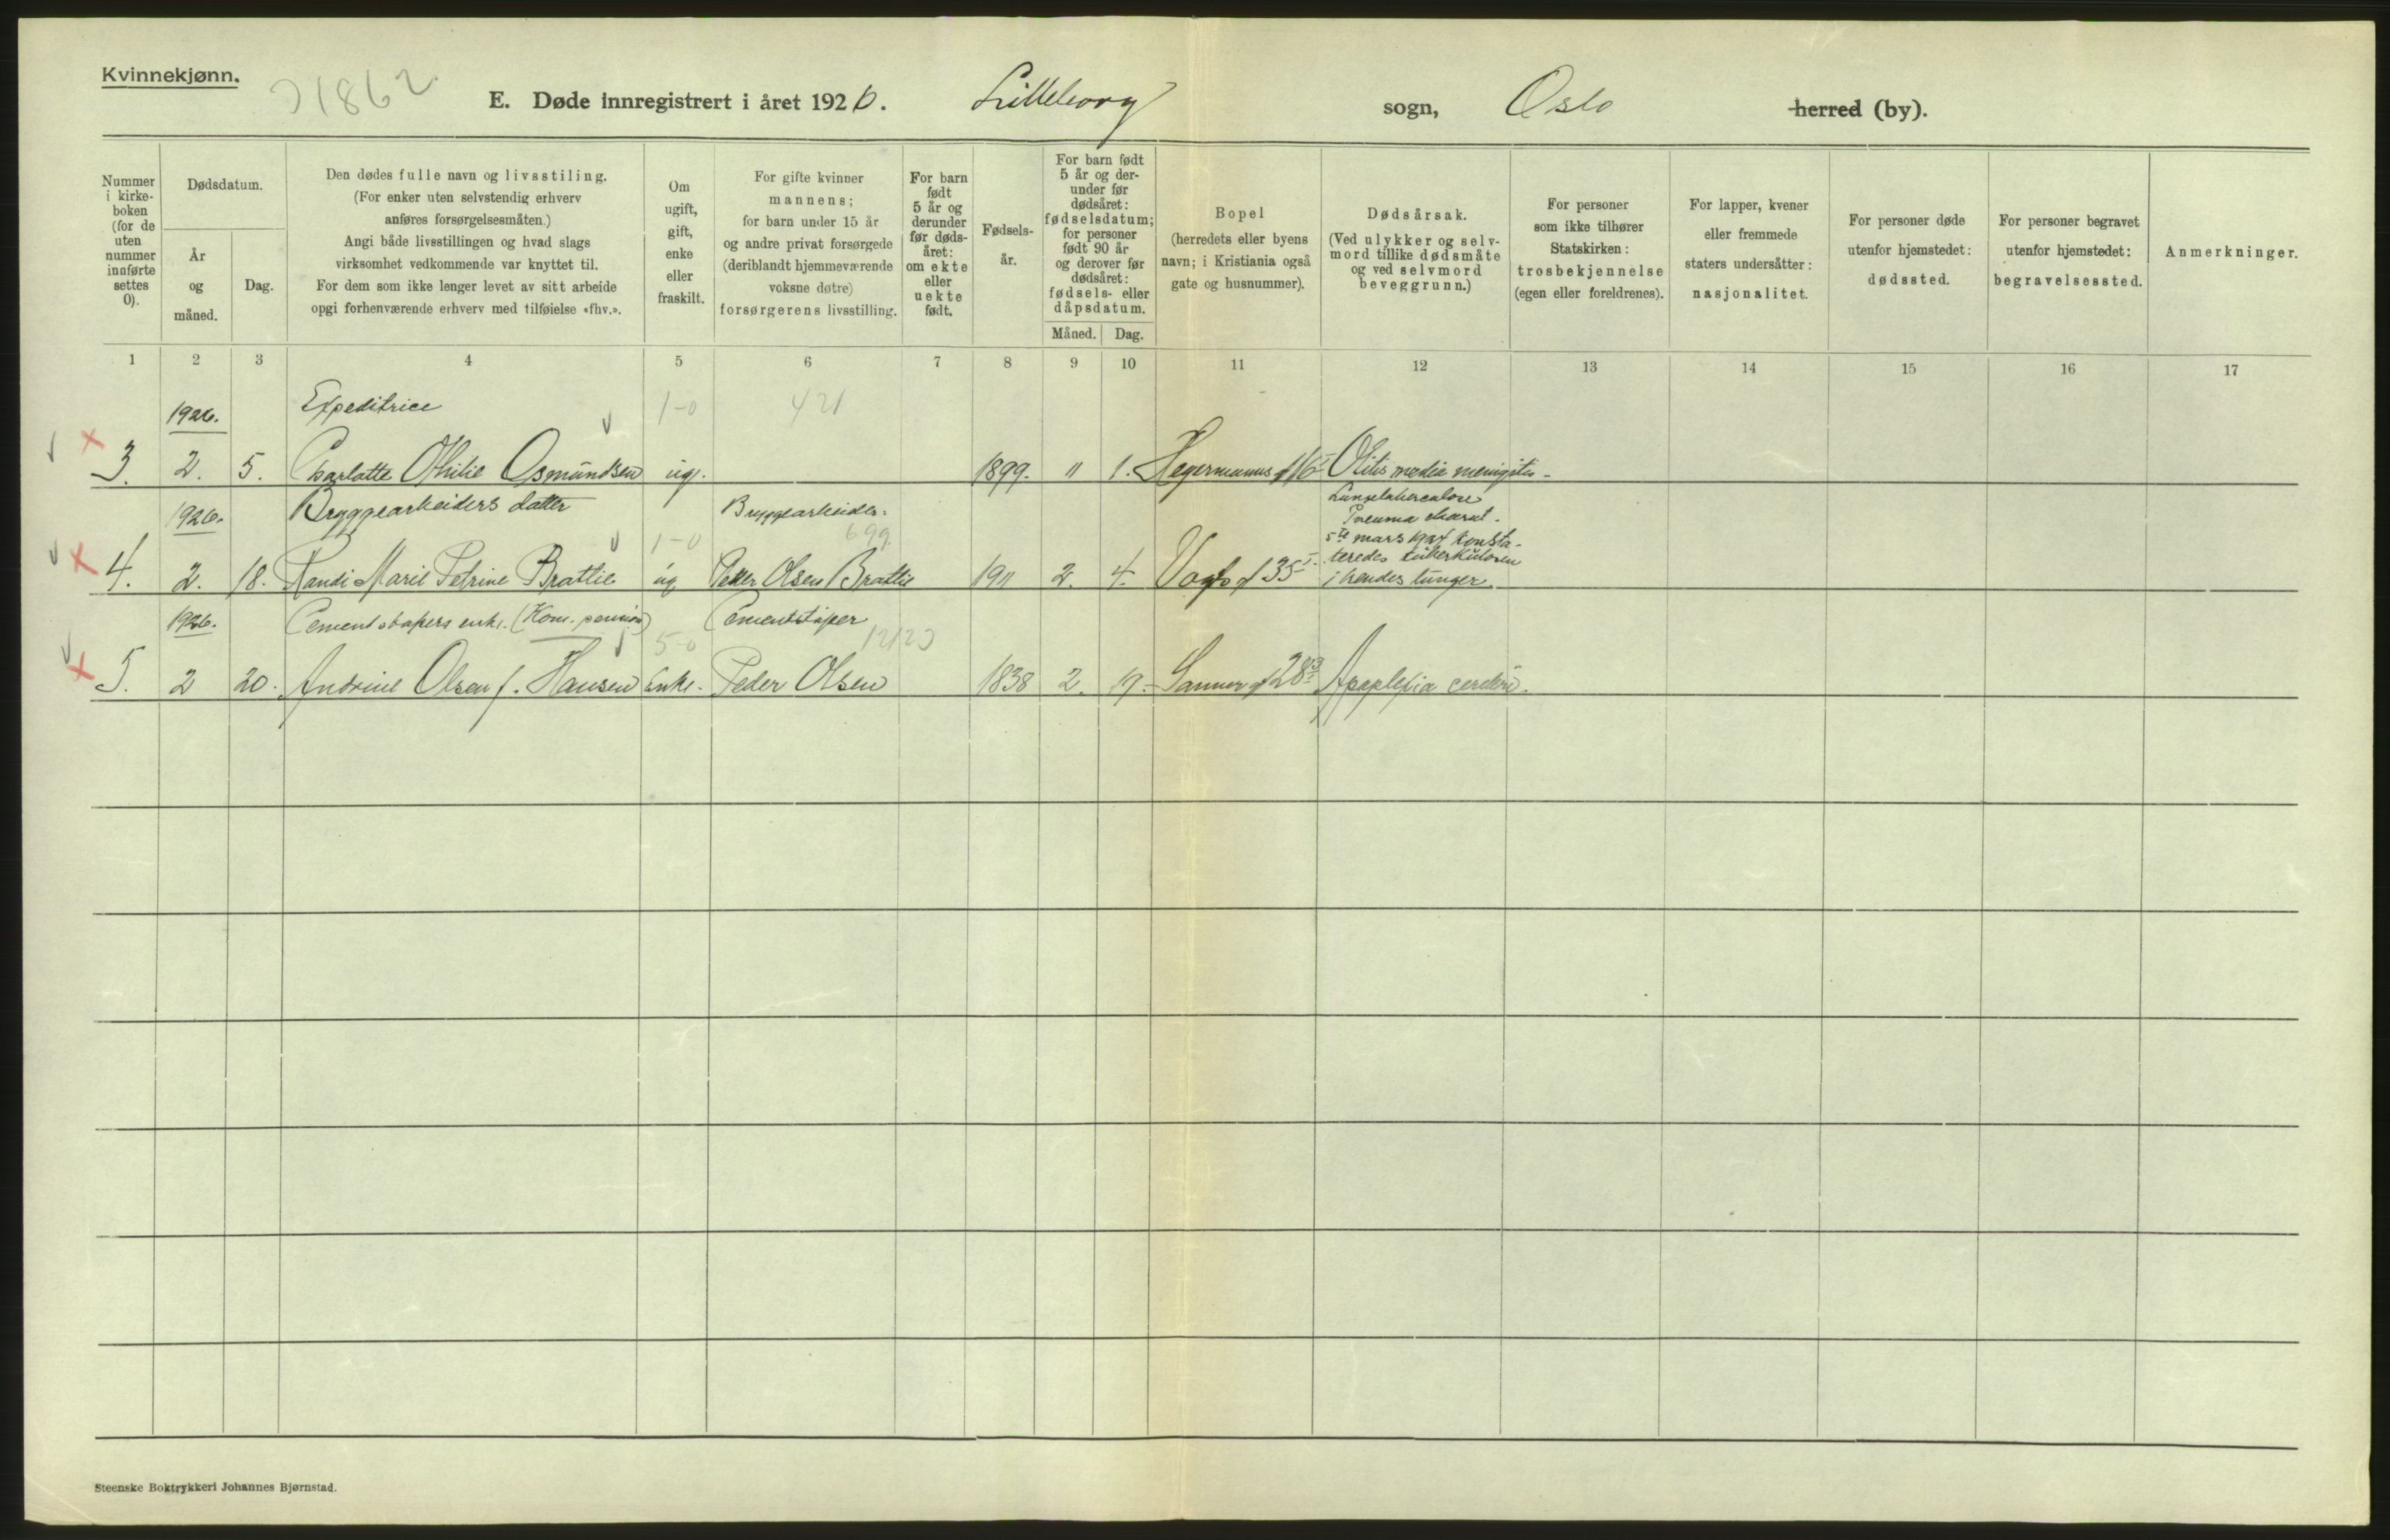 Kvinnekjønn.
E. Døde innregistrert i året 1926. Lilleborg sogn, Oslo herred (by).
Nummer i kirke-boken (for de uten nummer innførte settes 0).
Dødsdatum.
År og måned.
Dag.
Den dødes fulle navn og livsstiling.
(For enker uten selvstendig erhverv
anføres forsørgelsesmåten.)
Angi både livsstillingen og hvad slags
virksomhet vedkommende var knyttet til.
For dem som ikke lenger levet av sitt arbeide
opgi forhenværende erhverv med tilføielse «fhv.».
Om
ugift,
gift,
enke
eller
fraskilt.
For gifte kvinner
mannens;
for barn under 15 år
og andre privat forsørgede
(deriblandt hjemmeværende
voksne døtre)
forsørgerens livsstilling.
For barn
født
5 år og
derunder
før døds-
året:
om ekte
eller
uekte
født.
Fødsels-
år.
For barn født
5 år og der-
under før
dødsåret:
fødselsdatum;
for personer
født 90 år
og derover før
dødsåret:
fødsels- eller
dåpsdatum.
Måned. Dag.
Bopel
(herredets eller byens
navn; i Kristiania også
gate og husnummer).
Dødsårsak.
(Ved ulykker og selv-
mord tillike dødsmåte
og ved selvmord
beveggrunn.)
For personer
som ikke tilhører
Statskirken:
trosbekjennelse
(egen eller foreldrenes).
For lapper, kvener
eller fremmede
staters undersåtter:
nasjonalitet.
For personer døde
utenfor hjemstedet:
dødssted.
For personer begravet
utenfor hjemstedet:
begravelsessted.
Anmerkninger.
1 2 3 4 5 6 7 8 9 10 11 12 13 14 15 16 17
1926. Expeditrice 1-0 421
3. 2. 5. Charlotte Othilie Osmundsen ug. 1899. 11 1. Hegermanns g 16 Otitis media meningitis
1926. Bryggearbeiders datter Bryggearbeider.
1-0 699
Lungetuberculose
Pneuma
5te mars 1924 konsta-
teredes tuberkulosen
i hendes lunger.
4. 2. 18. Randi Marie Petrine Brattlie ug Peder Olsen Brattlie 1911 2. 4. Vogts g 35
1926. Cementstøpers enke. (Kom. pension) Cementstøper
5-0
5. 2 20. Andrine Olsen f. Hansen Enke. Peder Olsen 1838 2. 19. Sanner g 28 Apoplexia cerebri.
Steenske Boktrykkeri Johannes Bjørnstad.